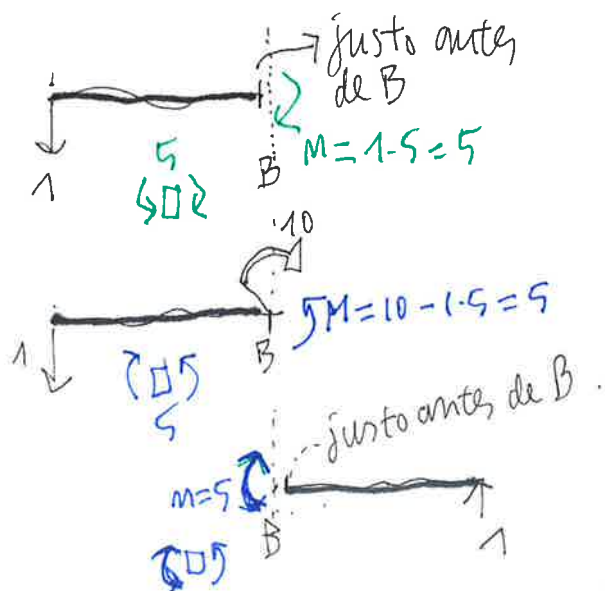 justo antes
de B
1
5
B
M = 1·5 = 5
10
1
B
M = 10 - 1·5 = 5
5
justo antes de B.
M = 5
B
1